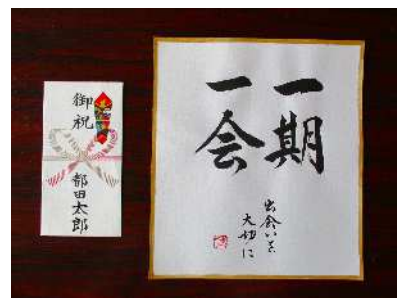 御祝
都田太郎
一期
一会
出会いを
大切に